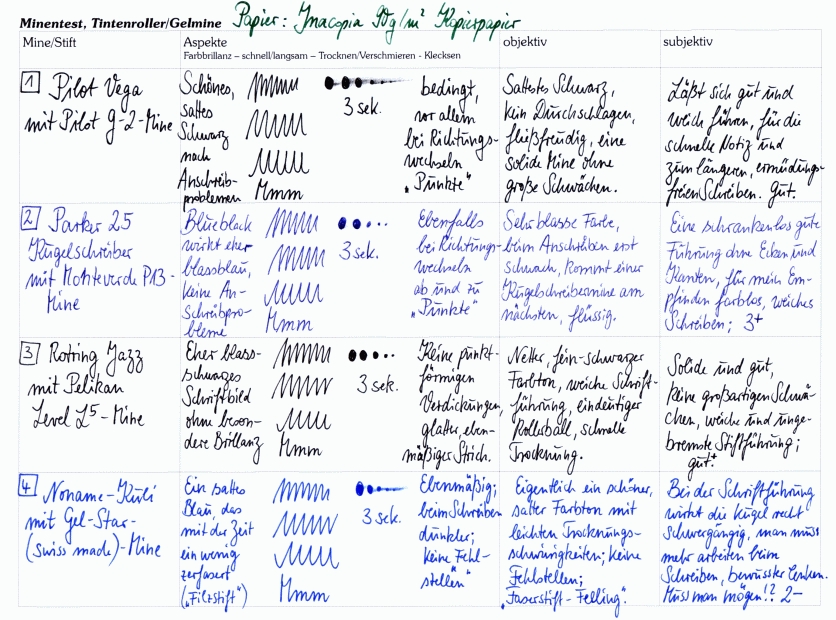 Minentest, Tintenroller/Gelmine Papier: Inacopia 90g/m² Kopierpapier
Mine/Stift
Aspekte
Farbbrillanz – schnell/langsam – Trocknen/Verschmieren - Klecksen
objektiv
subjektiv
1 Pilot Vega
mit Pilot G-2-Mine
Schönes,
sattes
Schwarz
nach
Anschreib-
problemen
Mmm
3 sek.
bedingt,
vor allem
bei Richtungs-
wechseln
"Punkte"
Sattestes Schwarz,
kein Durchschlagen,
fließfreudig, eine
solide Mine ohne
große Schwächen.
Läßt sich gut und
weich führen, für die
schnelle Notiz und
zum längeren, ermüdungs-
freien Schreiben. Gut.
2 Parker 25
Kugelschreiber
mit Monteverde P13-
Mine
Blueblack
wirkt eher
blassblau,
keine An-
schreibpro-
bleme
Mmm
3 sek.
Ebenfalls
bei Richtungs-
wechseln
ab und zu
"Punkte"
Sehr blasse Farbe,
beim Anschreiben erst
schwach, kommt einer
Kugelschreibermine am
nächsten, flüssig.
Eine schrankenlos gute
Führung ohne Ecken und
Kanten, für mein Em-
pfinden farblos, weiches
Schreiben; 3+
3 Rotring Jazz
mit Pelikan
Level L5-Mine
Eher blass-
schwarzes
Schriftbild
ohne beson-
dere Brillanz
Mmm
3 sek.
Keine punkt-
förmigen
Verdickungen,
glatter, eben-
mäßiger Strich.
Netter, fein-schwarzer
Farbton, weiche Schrift-
führung, eindeutiger
Rollerball, schnelle
Trocknung.
Solide und gut,
keine großartigen Schwä-
chen, weiche und unge-
bremste Stiftführung;
gut+
4 Noname-Kuli
mit Gel-Star-
(swiss made)-Mine
Ein sattes
Blau, das
mit der Zeit
ein wenig
zerfasert
("Filzstift")
Mmm
3 sek.
Ebenmäßig;
beim Schreiben
dunkler;
keine Fehl-
stellen"
Eigentlich ein schöner,
satter Farbton mit
leichten Trocknungs-
schwierigkeiten; keine
Fehlstellen;
"Faserstift-Felling".
Bei der Schriftführung
wirkt die Kugel recht
schwergängig, man muss
mehr arbeiten beim
Schreiben, bewusster lenken.
Muss man mögen!? 2-